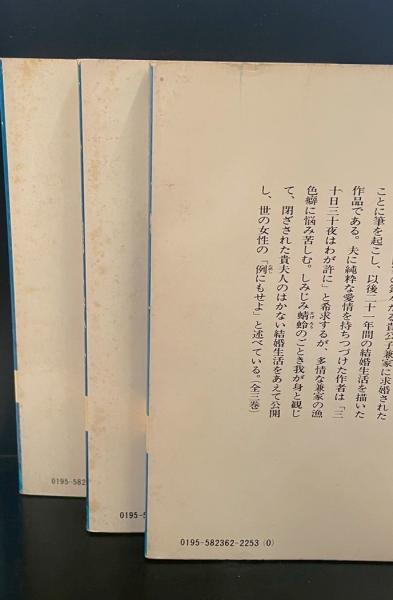 ことに筆を起こし、以後二十一年間の結婚生活を描いた
作品である。夫に純粋な愛情を持ちつづけた作者は「三
十日三十夜はわが許に」と希求するが、多情な兼家の漁
色癖に悩み苦しむ。しみじみ蜻蛉のごとき我が身と観じ
て、閉ざされた貴夫人のはかない結婚生活をあえて公開
し、世の女性の「例にもせよ」と述べている。(全三巻)
0195-582
0195-5
0195-582362-2253 (0)